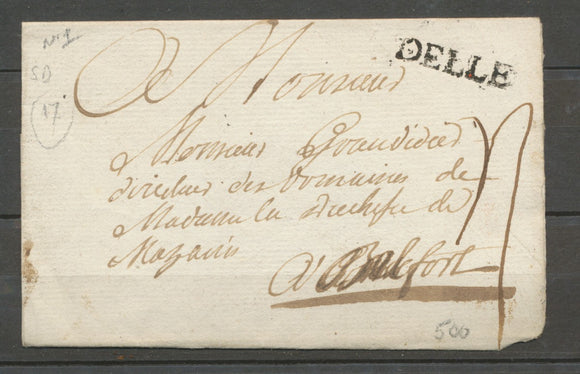 DELLE
SD
17
A Monsieur
Monsieur Grandidier
directeur des Domaines de
Madame la Duchesse de
Mazarin
A Belfort
500